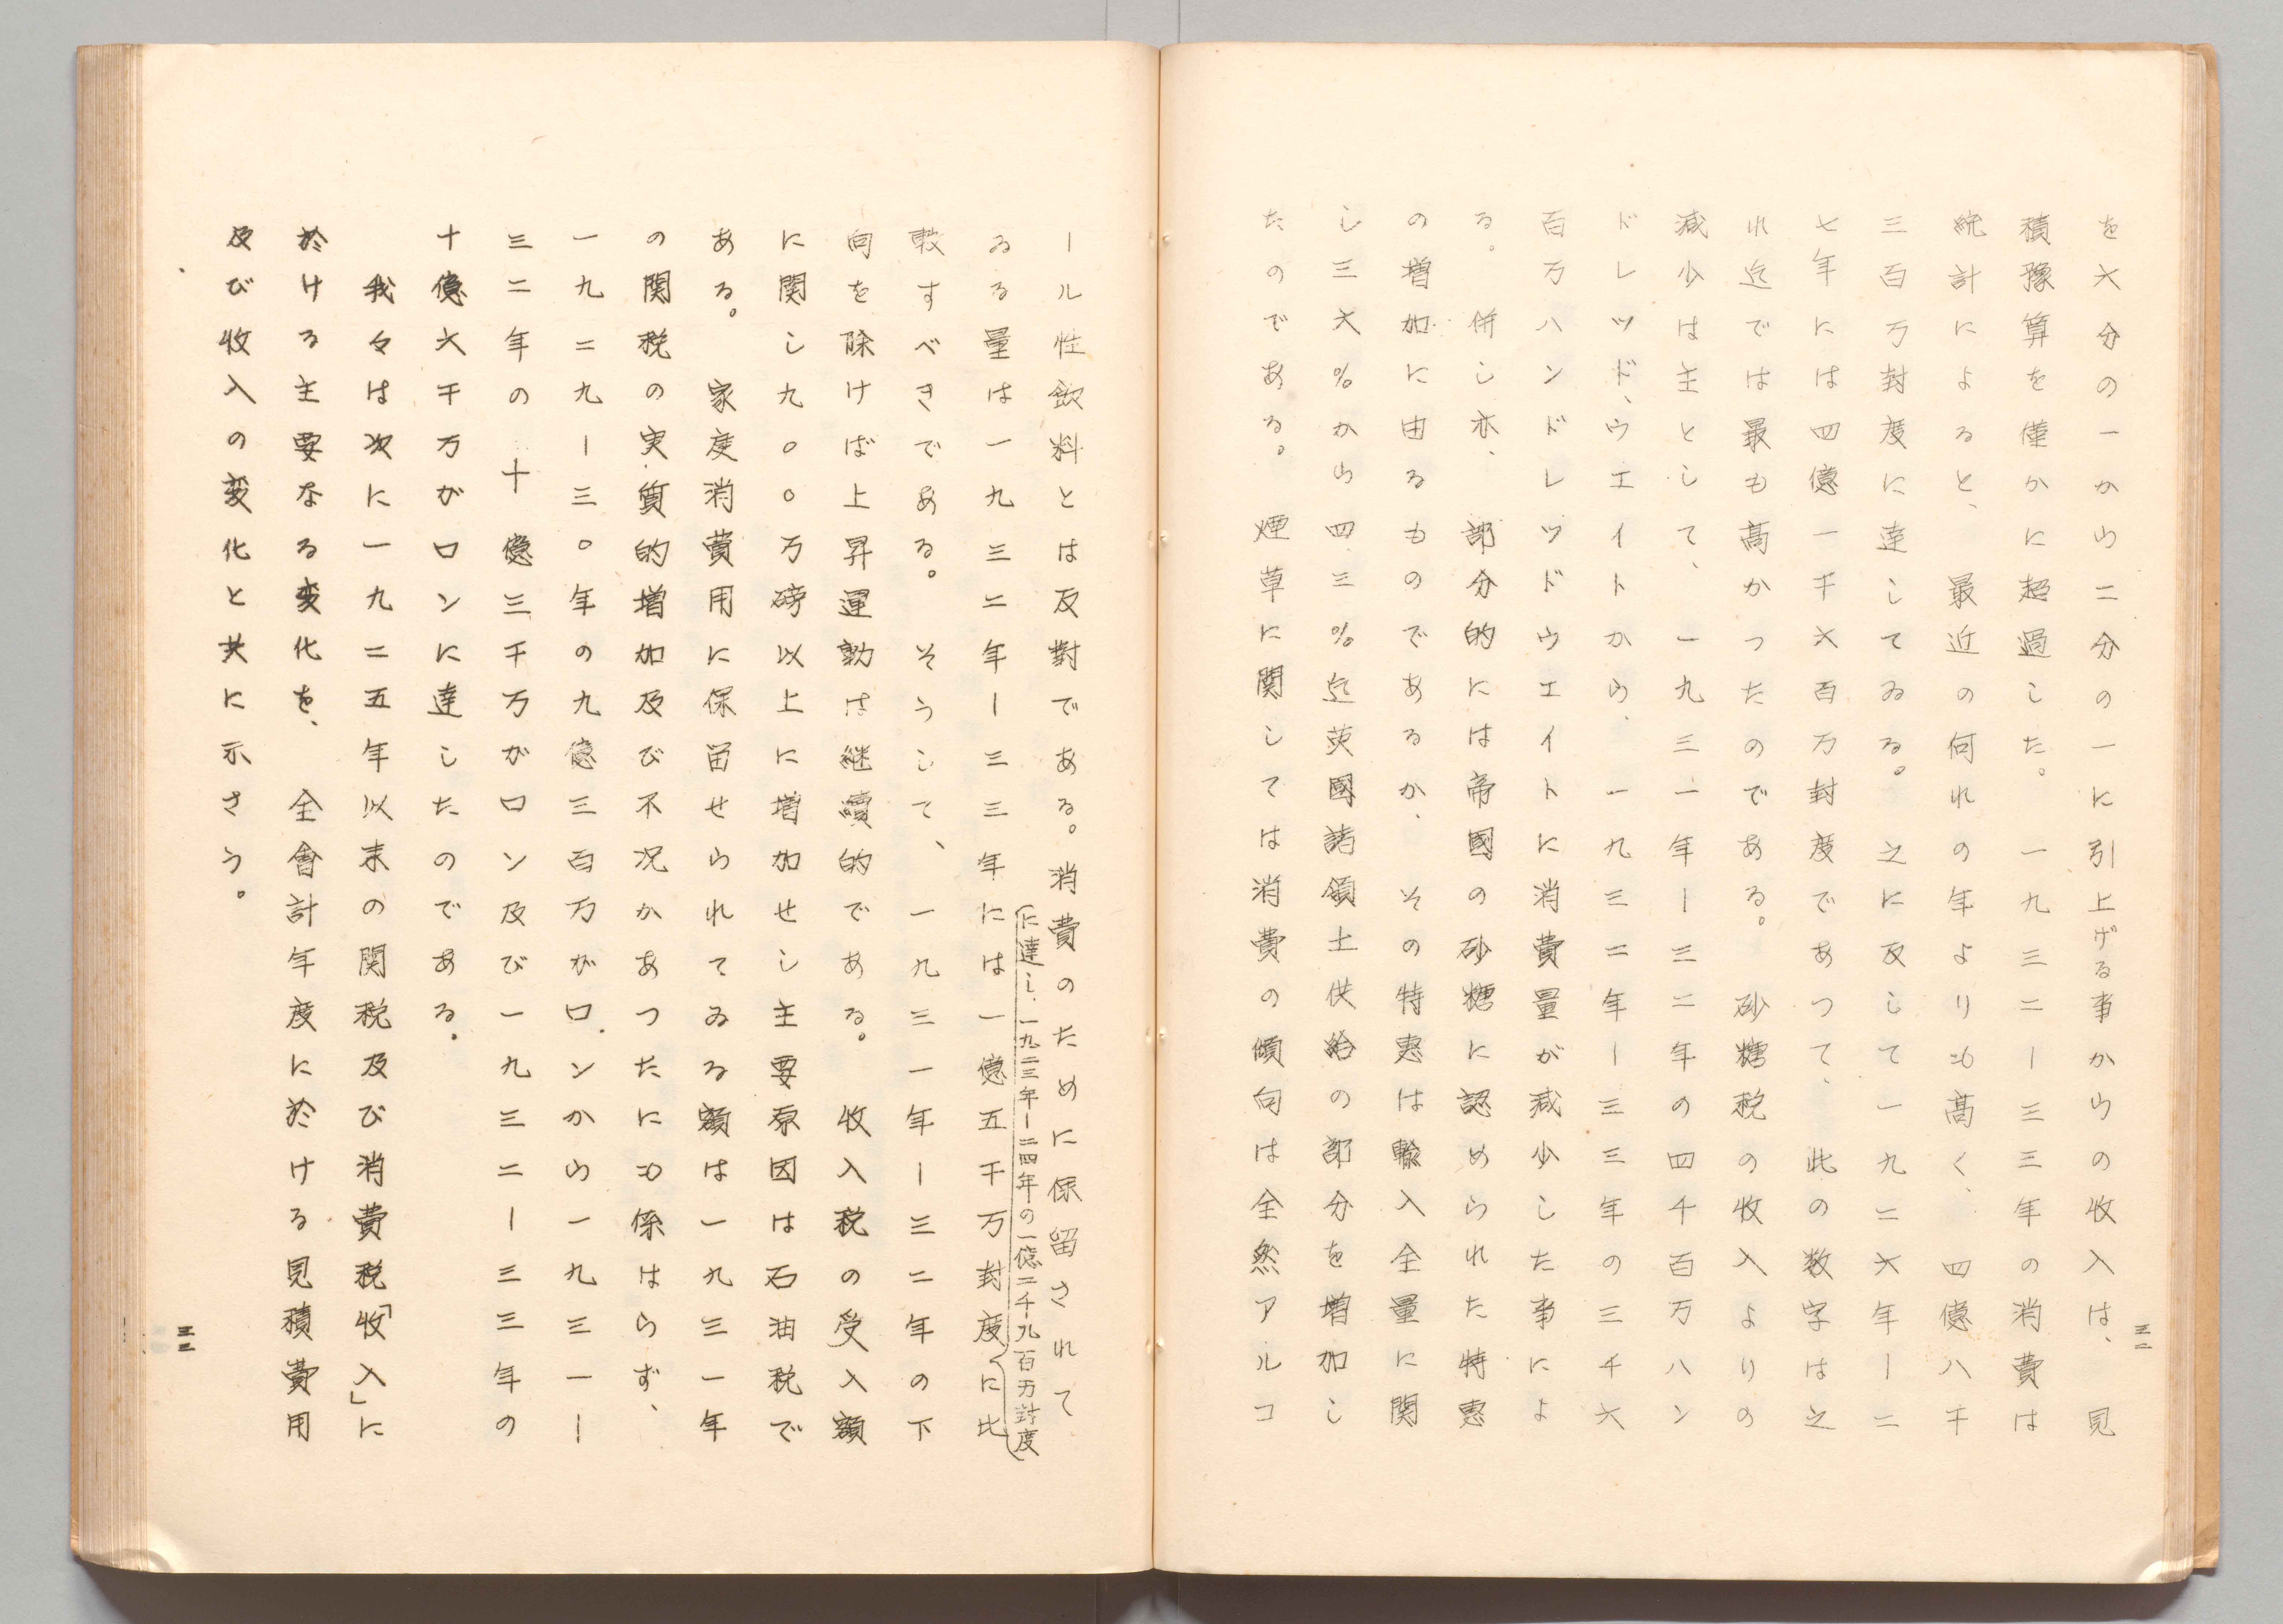 を六分の一から二分の一に引上げる事からの收入は、見
積豫算を僅かに超過した。一九三二ー三三年の消費は
統計によると、最近の何れの年よりも高く、四億八千
三百万封度に達してゐる。之に反して一九二六年ー二
七年には四億一千六百万封度であつて、此の数字は之
れ迄では最も高かつたのである。砂糖税の收入よりの
減少は主として、一九三一年ー三二年の四千百万ハン
ドレツド、ウエイトから、一九三二年ー三三年の三千六
百万ハンドレツドウエイトに消費量が減少した事によ
る。併し亦、部分的には帝國の砂糖に認められた特惠
の増加に由るものであるか、その特惠は輸入全量に関
し三六％から四三％迄英國諸領土供給の部分を増加し
たのである。煙草に関しては消費の傾向は全然アルコ
三二
ール性飲料とは反對である。消費のために保留されて
ゐる量は一九三二年ー三三年には一億五千万封度に比
(に達し、一九二三年ー二四年の一億二千九百万封度)
較すべきである。そうして、一九三一年ー三二年の下
向を除けば上昇運動は継續的である。收入税の受入額
に関し九〇〇万磅以上に増加せし主要原因は石油税で
ある。家庭消費用に保留せられてゐる額は一九三一年
の関税の実質的増加及び不況かあつたにも係はらず、
一九二九ー三〇年の九億三百万がロンから一九三一ー
三二年の十億三千万がロン及び一九三二ー三三年の
十億六千万がロンに達したのである。
我々は次に一九二五年以末の関税及び消費税「收入」に
於ける主要なる変化を、全會計年度に於ける見積費用
及び收入の変化と共に示さう。
三三